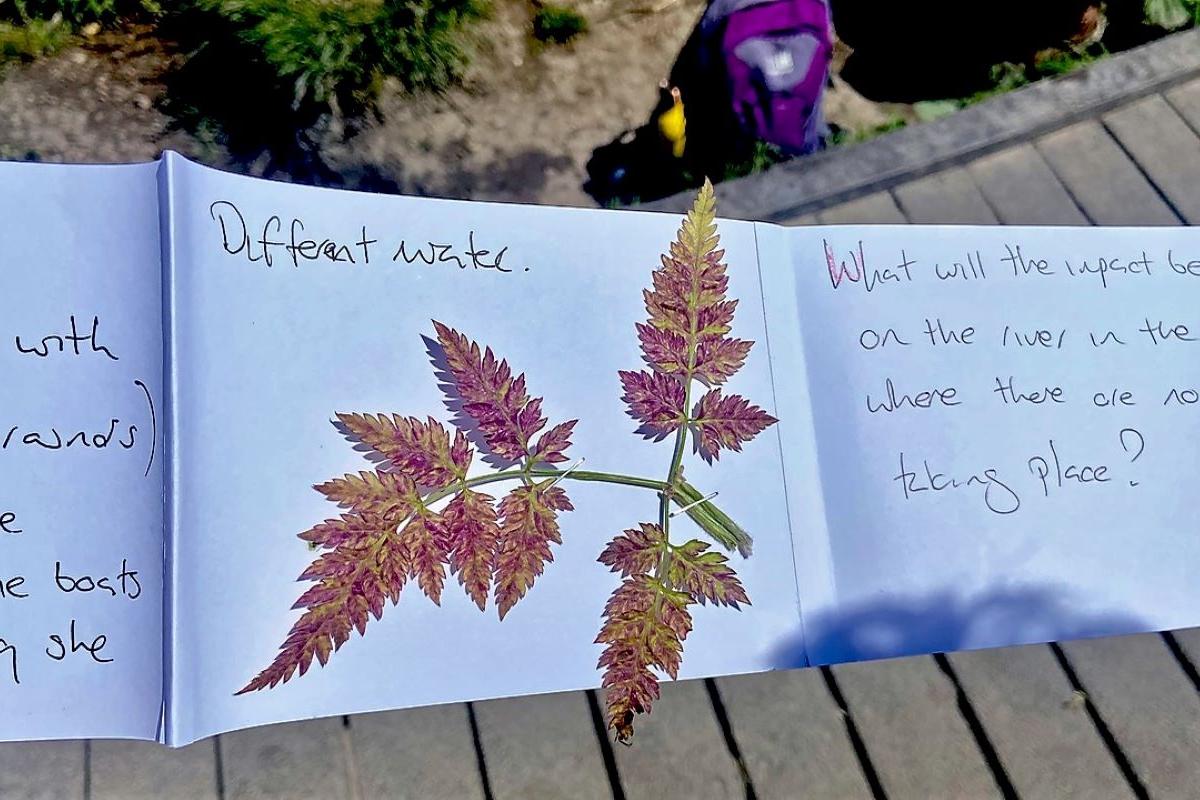 with
rawnds)
e
e boats
g she
Different water.
What will the impact be
on the river in the
where there are no
taking place?